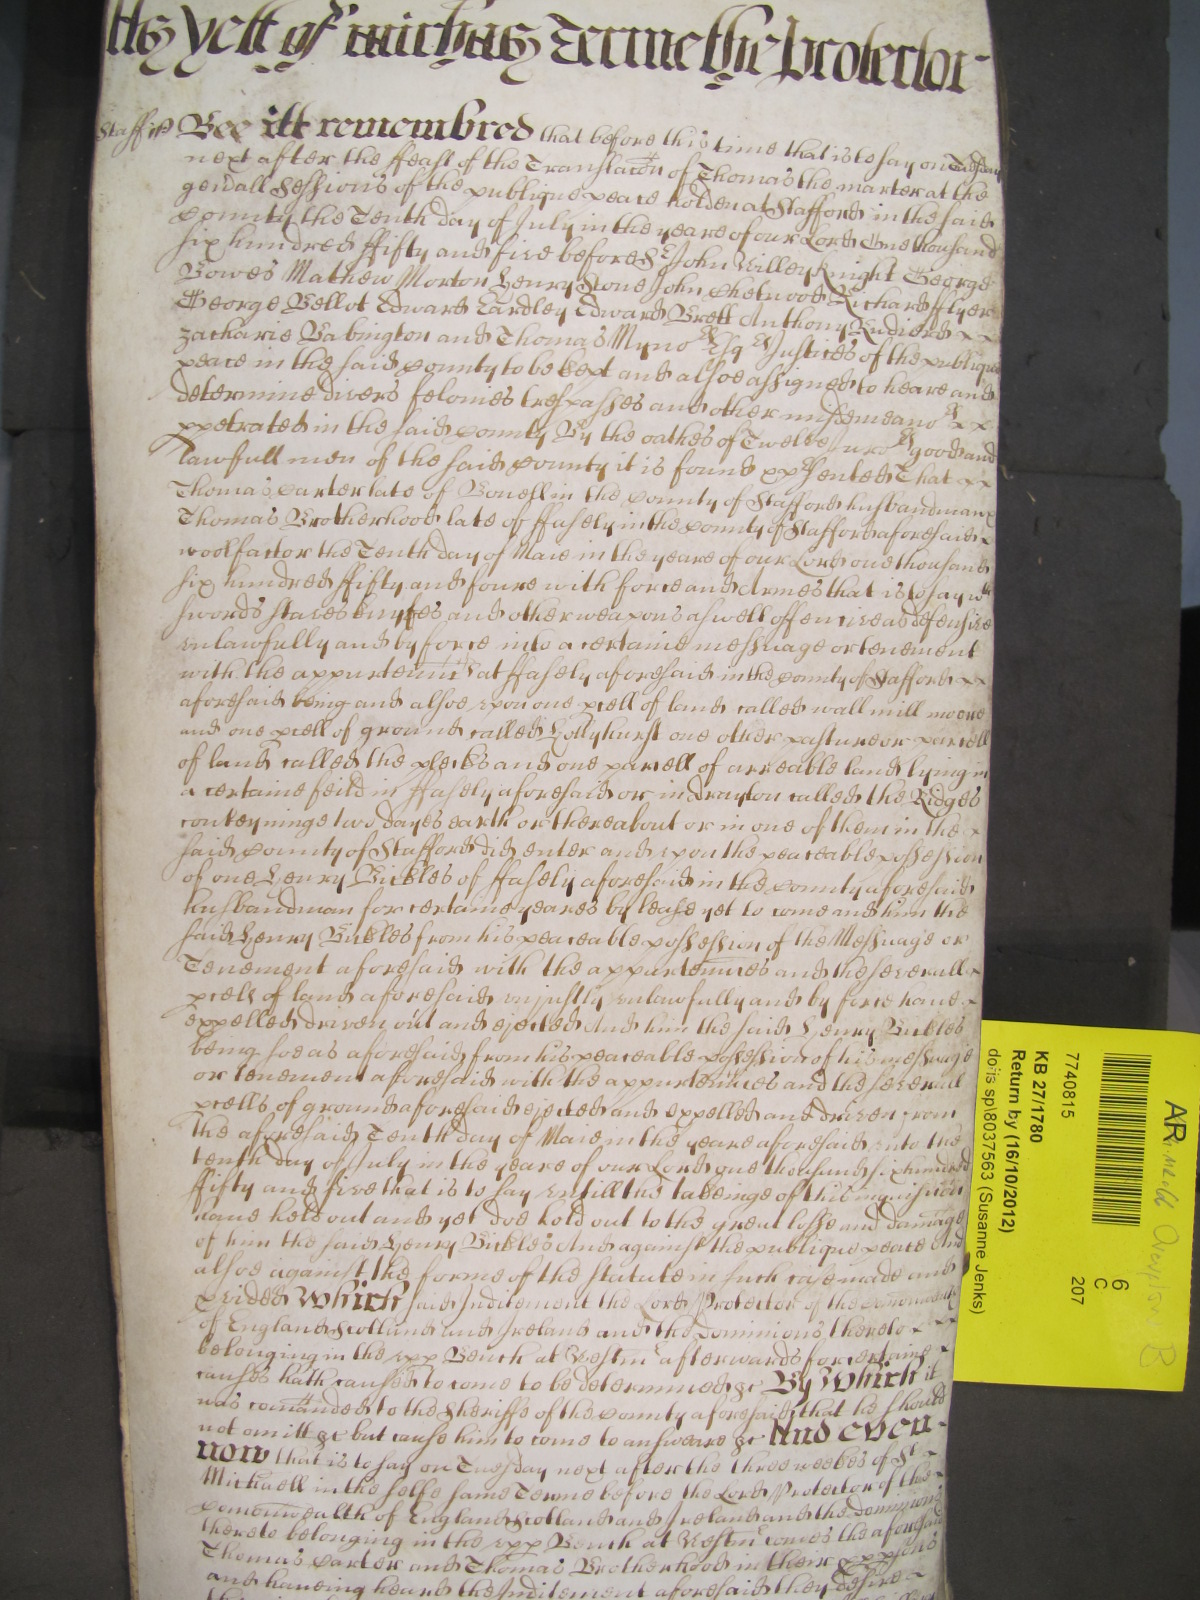 As yett of Mich'as Terme the Protector
Staff ss Bee itt remembred that before this time that is to say on Tuesday
next after the ffeast of the Translacon of Thomas the marter at the
gen'all Sessions of the publique peace holden at Stafford in the said
County the Tenth day of July in the yeare of our Lord One thousand
six hundred ffifty and five before Sr John Willey Knight George
Bowes Mathew Morton Henry Stone John Chetwood Richard fflyer
George Bellot Edward Eardley Edward Brett Anthony Rudierd
Zacharie Babington and Thomas Mynors Esqrs Justices of the publique
peace in the said County to be kept and alsoe assigned to heare and
determine divers felonies trespasses and other misdemeanors
ppetrated in the said County By the oathes of Twelve Jurors good and
lawfull men of the said County it is found p'sented That
Thomas Carter late of Bonell in the County of Stafford husbandman
Thomas Brotherhood late of ffasely in the County of Stafford aforesaid
woolfactor the Tenth day of Maie in the yeare of our Lord one thousand
six hundred ffifty and foure with force and Armes that is to say wth
swords staves knyfes and other weapons aswell offencive as defensive
unlawfully and by force into a certaine messuage or tenement
with the appurtenncs at ffasely aforesaid in the County of Stafford
aforesaid being and alsoe upon one pcell of land called wall mill moore
and one pcell of ground called Hollyhurst one other pasture or parcell
of land called the plecks and one parcell of arreable land lying in
a certaine feild in ffasely aforesaid or in Drayton called the Ridges
conteyninge two dayes earth or thereabout or in one of them in the
said County of Stafford did enter and upon the peaceable possession
of one Henry Bickles of ffasely aforesaid in the County aforesaid
husbandman for certaine yeares by lease yet to come and him the
said Henry Bickles from his peaceable possession of the Messuage or
Tenement aforesaid with the appurtennces and the severall
pcells of land aforesaid unjustly unlawfully and by force have
expelled driven out and ejected And him the said Henry Bickles
being soe as aforesaid from his peaceable possession of his messuage
or tenement aforesaid with the appurtennces and the severall
pcells of ground aforesaid ejected and expelled and driven from
the aforesaid Tenth day of Maie in the yeare aforesaid unto the
tenth day of July in the yeare of our Lord one thousand six hundred
ffifty and five that is to say untill the takeinge of this inquisicon
have held out and yet doe hold out to the great losse and damage
of him the said Henry Bickles And against the publique peace And
alsoe against the forme of the statute in such case made and
pvided Which said Inditement the Lord Protector of the Comonwealth
of England Scotland and Ireland and the dominions thereto
belonging in the upp Bench at Westmr afterwards for certaine
causes hath caused to come to be determined &c By Which it
was comanded to the Sheriffe of the County aforesaid that he should
not omitt &c but cause him to come to answeare &c And even
now that is to say on Tuesday next after the three weekes of St
Michaell in the selfe same Terme before the Lord Protector of the
Comonwealth of England Scotland and Ireland and the dominions
thereto belonging in the upp Bench at Westmr comes the aforesaid
Thomas Carter and Thomas Brotherhood in their pp psons
and haveing heard the Inditement aforesaid they desire
AR
6
C
207
7740815
KB 27/1780
Return by (16/10/2012)
do'is sp\8037563 (Susanne Jenks)